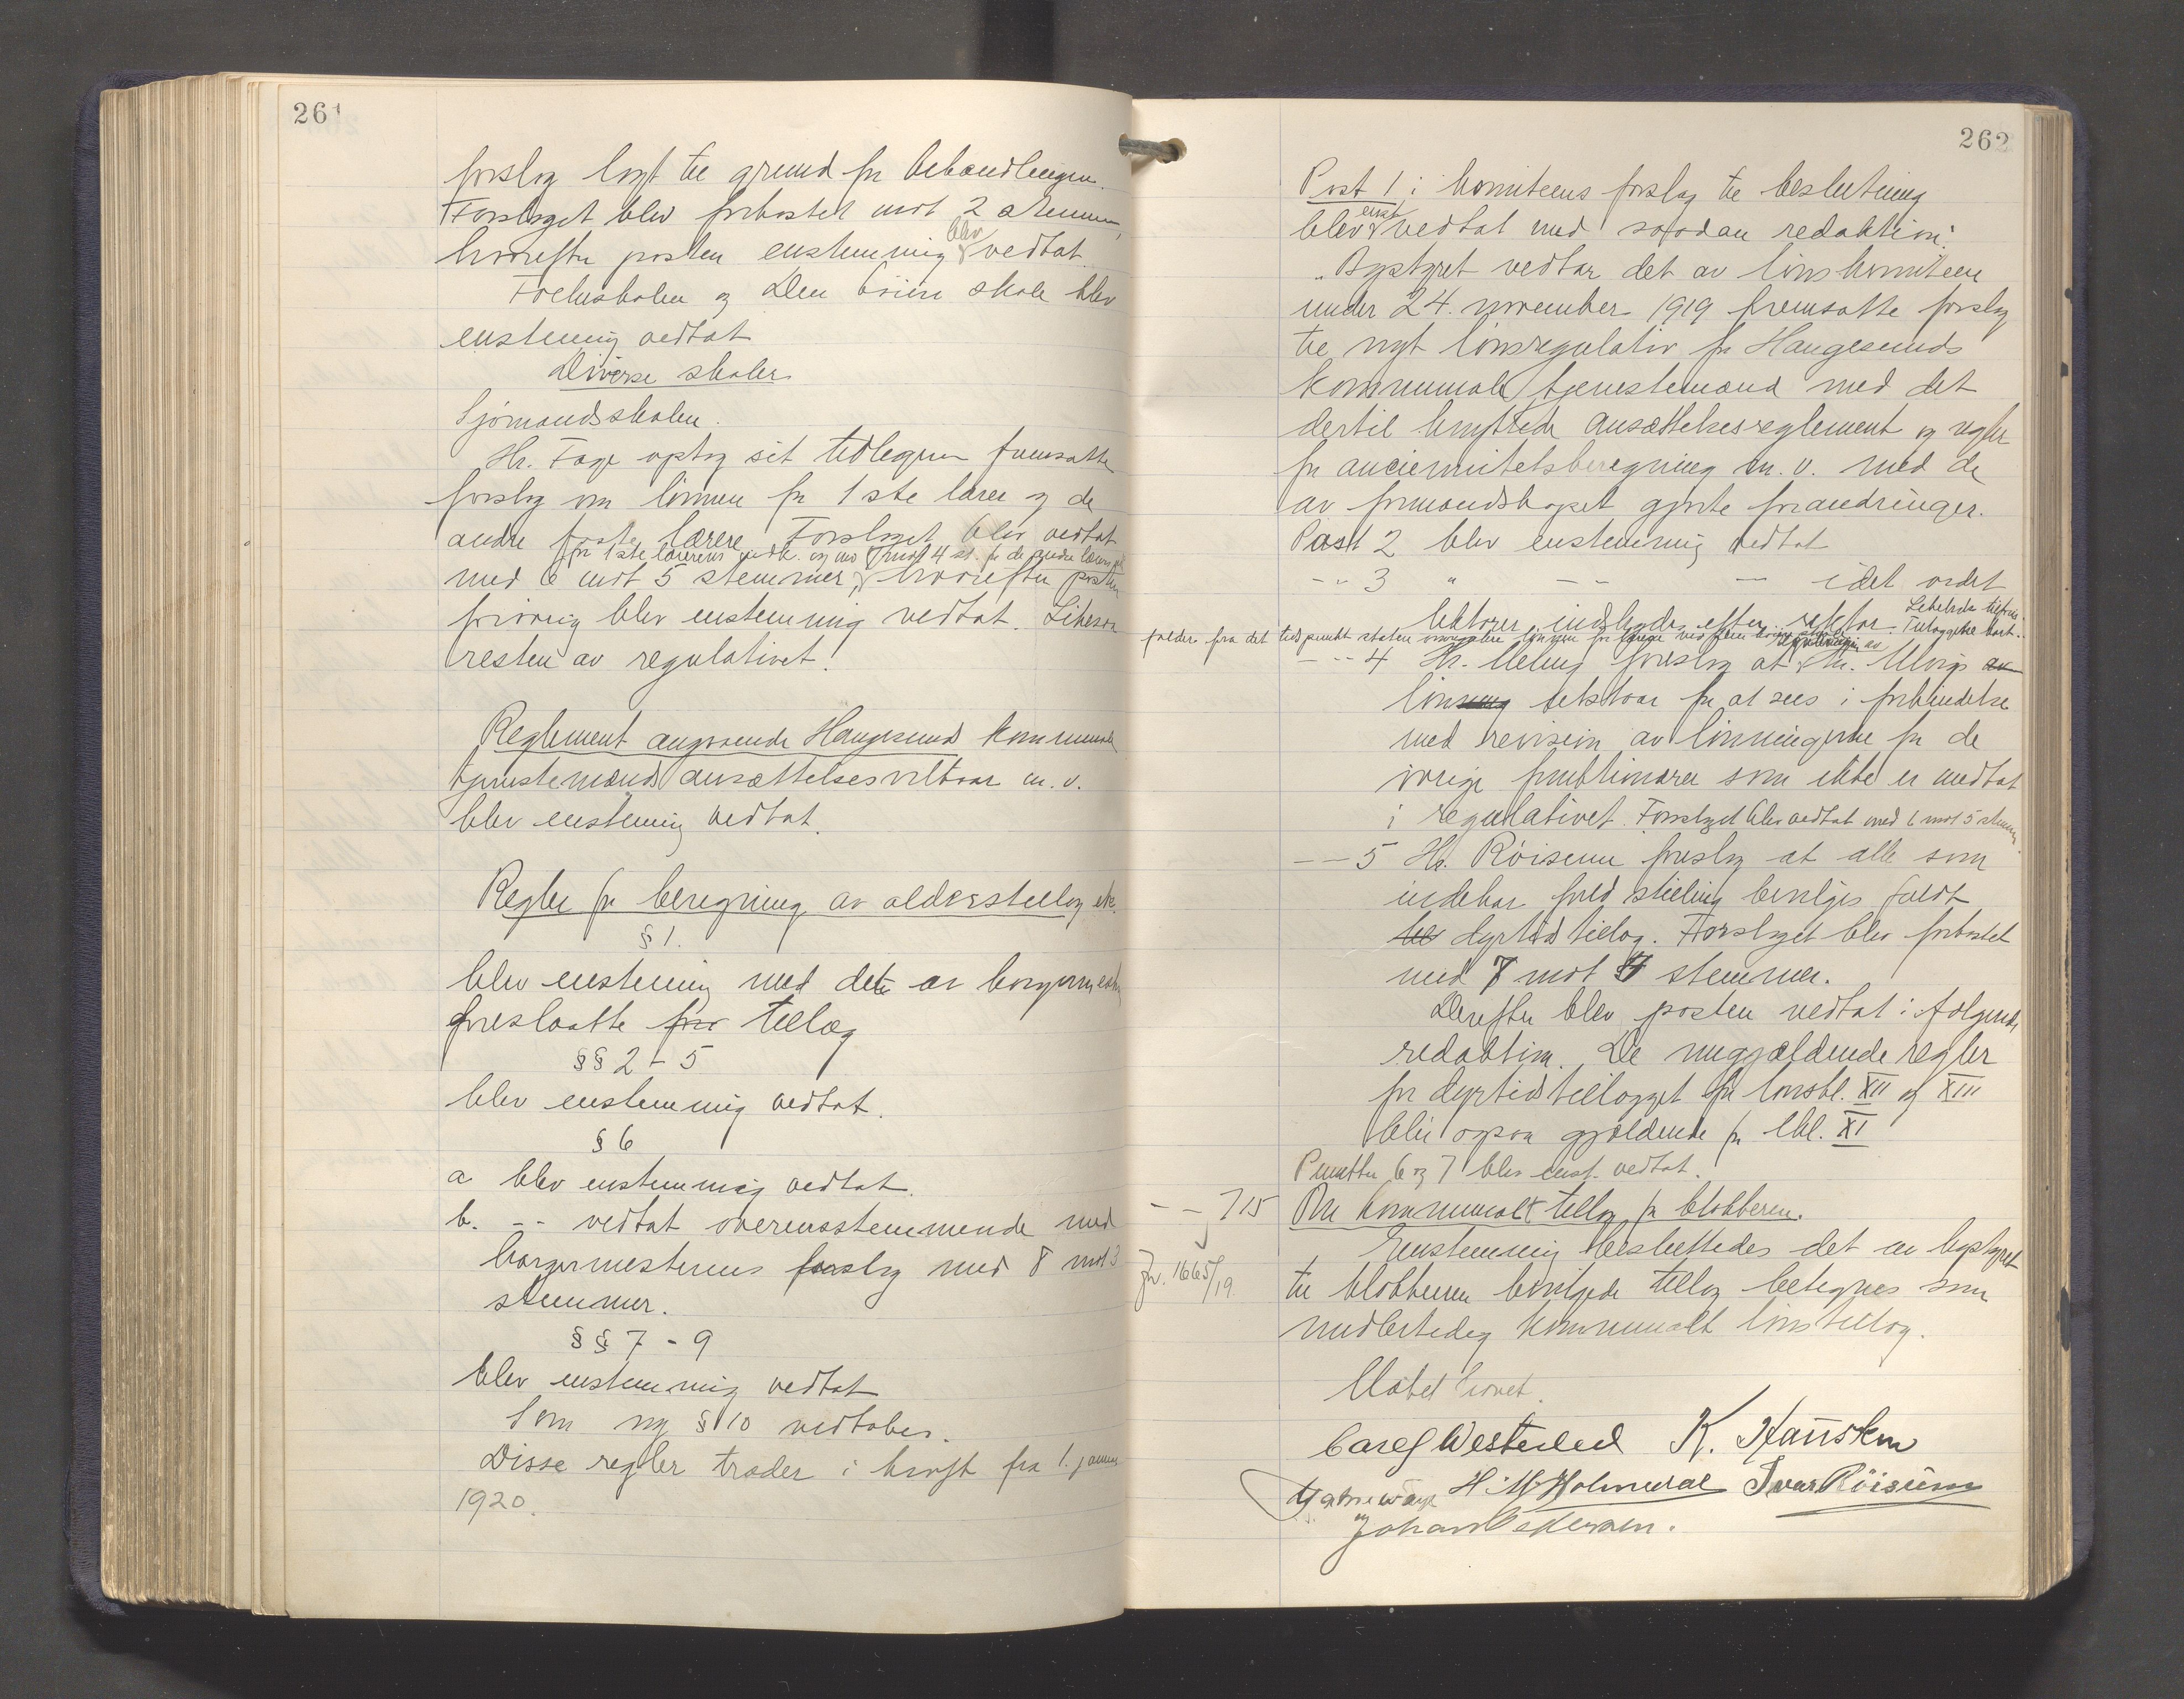 261
forslag lagt til grund for behandlingen.
Forslaget blev forkastet mot 2 stemmer,
hvorefter posten enstemmig blev vedtat.
Folkeskolen og Den höiere skole blev
enstemmig vedtat
Diverse skoler
Sjömandsskolen.
Hr. Fage optog sit tidligere fremsatte
forslag om lönnen for 1ste lærer og de
andre faste lærere. Forslaget blev vedtat
for 1ste lærerens vedk. og mot 4 st. for de andre læreres
med 6 mot 5 stemmer, hvorefter posten
forövrig blev enstemmig vedtat. Likesaa
resten av regulativet.
Reglement angaaende Haugesunds kommunale
tjenestemænds ansættelsesvilkaar m.v.
blev enstemmig vedtat.
Regler for beregning av alderstillæg etc.
§ 1.
blev enstemmig med det av borgermester
foreslaatte tillæg
§§ 2 - 5
blev enstemmig vedtat.
§ 6
a blev enstemmig vedtat.
b. -- vedtat overensstemmende med
borgermesterens forslag med 8 mot 3
stemmer.
§§ 7 - 9
blev enstemmig vedtat
Som ny § 10 vedtokes.
Disse regler træder i kraft fra 1. januar
1920.
262
Post 1 i komiteens forslag til beslutning
blev enst. vedtat med saadan redaktion:
„Bystyret vedtar det av lönskomiteen
under 24. november 1919 fremsatte forslag
til nyt lönsregulativ for Haugesunds
kommunale tjenestemænd med det
dertil knyttede ansættelsesreglement og regler
for anciennitetsberegning m.v. med de
av formandskapet gjorte forandringer.
Post 2 blev enstemmig vedtat
-- 3 " -- -- idet ordet
lektorer indskydes efter rektor. Lekelæsetillæg
falder fra det tidspunkt staten
-- 4 Hr. Meling foreslog at reguleringen av hr. Alvigs
lön utstaar for at sees i forbindelse
med revision av lönningerne for de
övrige funktionærer som ikke er medtat
i regulativet. Forslaget blev vedtat med 6 mot 5 stemmer.
-- 5 Hr. Röisum foreslog at alle som
indehar fuld stilling bevilges fuldt
dyrtidstillæg. Forslaget blev forkastet
med 7 mot 4 stemmer.
Derefter blev posten vedtat i fölgende
redaktion. De nugjældende regler
for dyrtidstillægget for lönskl. XII og XIII
blir ogsaa gjældende for lkl. XI
Punkter 6 og 7 blev enst. vedtat.
-- 715 Om kommunalt tillæg for klokkeren.
Jnr. 1665/19.
Enstemmig besluttedes det av bystyret
til klokkeren bevilgede tillæg betegnes som
midlertidig kommunalt lönstillæg.
Mötet hævet.
Carl Westerlund K. Hausken
H. M. Holmedal Ivar Röisum
Johan Pedersen.